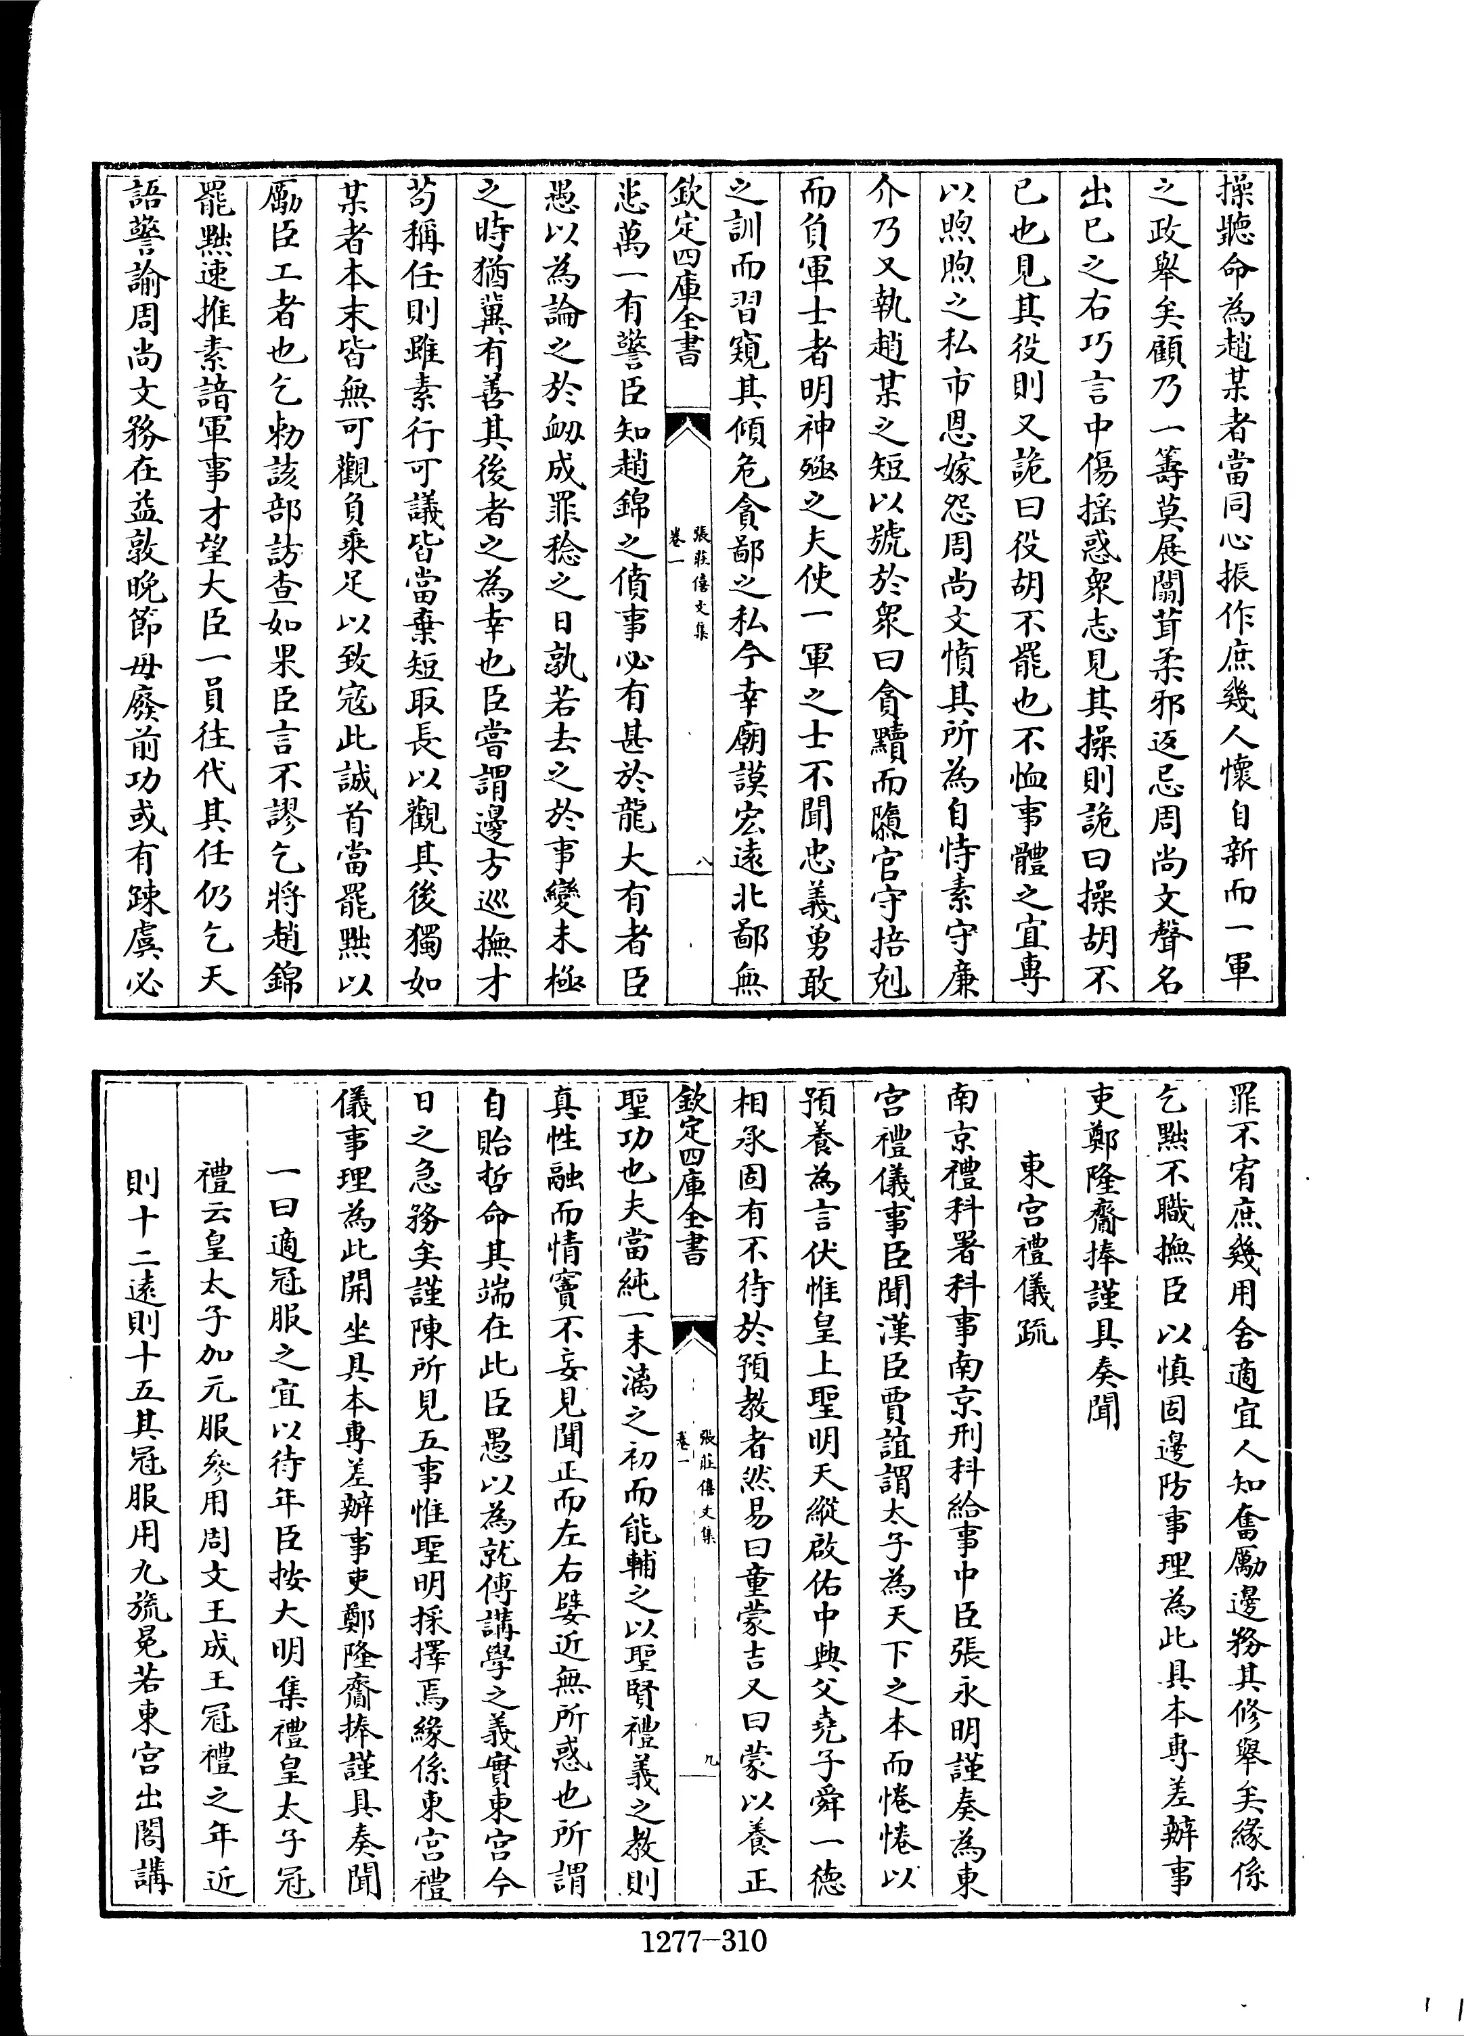 操聽命為趙某者當同心振作庶幾人懷自新而一軍
之政舉矣顧乃一籌莫展闒茸柔邪返忌周尚文聲名
出已之右巧言中傷揺惑衆志見其操則詭曰操胡不
已也見其役則又詭曰役胡不罷也不恤事體之宜專
以煦煦之私市恩嫁怨周尚文憤其所為自恃素守廉
介乃又執趙某之短以號於衆曰貪黷而隳官守掊剋
而負軍士者明神殛之夫使一軍之士不聞忠義勇敢
之訓而習窺其傾危貪鄙之私今幸廟謨宏遠北鄙無
欽定四庫全書
張莊僖文集
卷一
八
恙萬一有警臣知趙錦之僨事必有甚於龍大有者臣
愚以為論之於衂成罪稔之日孰若去之於事變未極
之時猶冀有善其後者之為幸也臣嘗謂邊方巡撫才
茍稱任則雖素行可議皆當棄短取長以觀其後獨如
某者本末皆無可觀負乗足以致寇此誠首當罷黜以
勵臣工者也乞勅該部訪查如果臣言不謬乞將趙錦
罷黜速推素諳軍事才望大臣一員往代其任仍乞天
語警諭周尚文務在益敦晚節毋廢前功或有踈虞必
罪不宥庶幾用舍適宜人知奮勵邊務其修舉矣緣係
乞黜不職撫臣以慎固邊防事理為此具本專差辦事
吏鄭隆齎捧謹具奏聞
東宮禮儀疏
南京禮科署科事南京刑科給事中臣張永明謹奏為東
宮禮儀事臣聞漢臣賈誼謂太子為天下之本而惓惓以
預養為言伏惟皇上聖明天縱啟佑中興父堯子舜一德
相承固有不待於預教者然易曰童蒙吉又曰蒙以養正
欽定四庫全書
張莊僖文集
卷一
九
聖功也夫當純一未漓之初而能輔之以聖賢禮義之教則
真性融而情竇不妄見聞正而左右嬖近無所惑也所謂
自貽哲命其端在此臣愚以為就傅講學之義實東宮今
日之急務矣謹陳所見五事惟聖明採擇焉緣係東宮禮
儀事理為此開坐具本專差辦事吏鄭隆齎捧謹具奏聞
一曰適冠服之宜以待年臣按大明集禮皇太子冠
禮云皇太子加元服參用周文王成王冠禮之年近
則十二遠則十五其冠服用九旒冕若東宮出閣講
1277-310